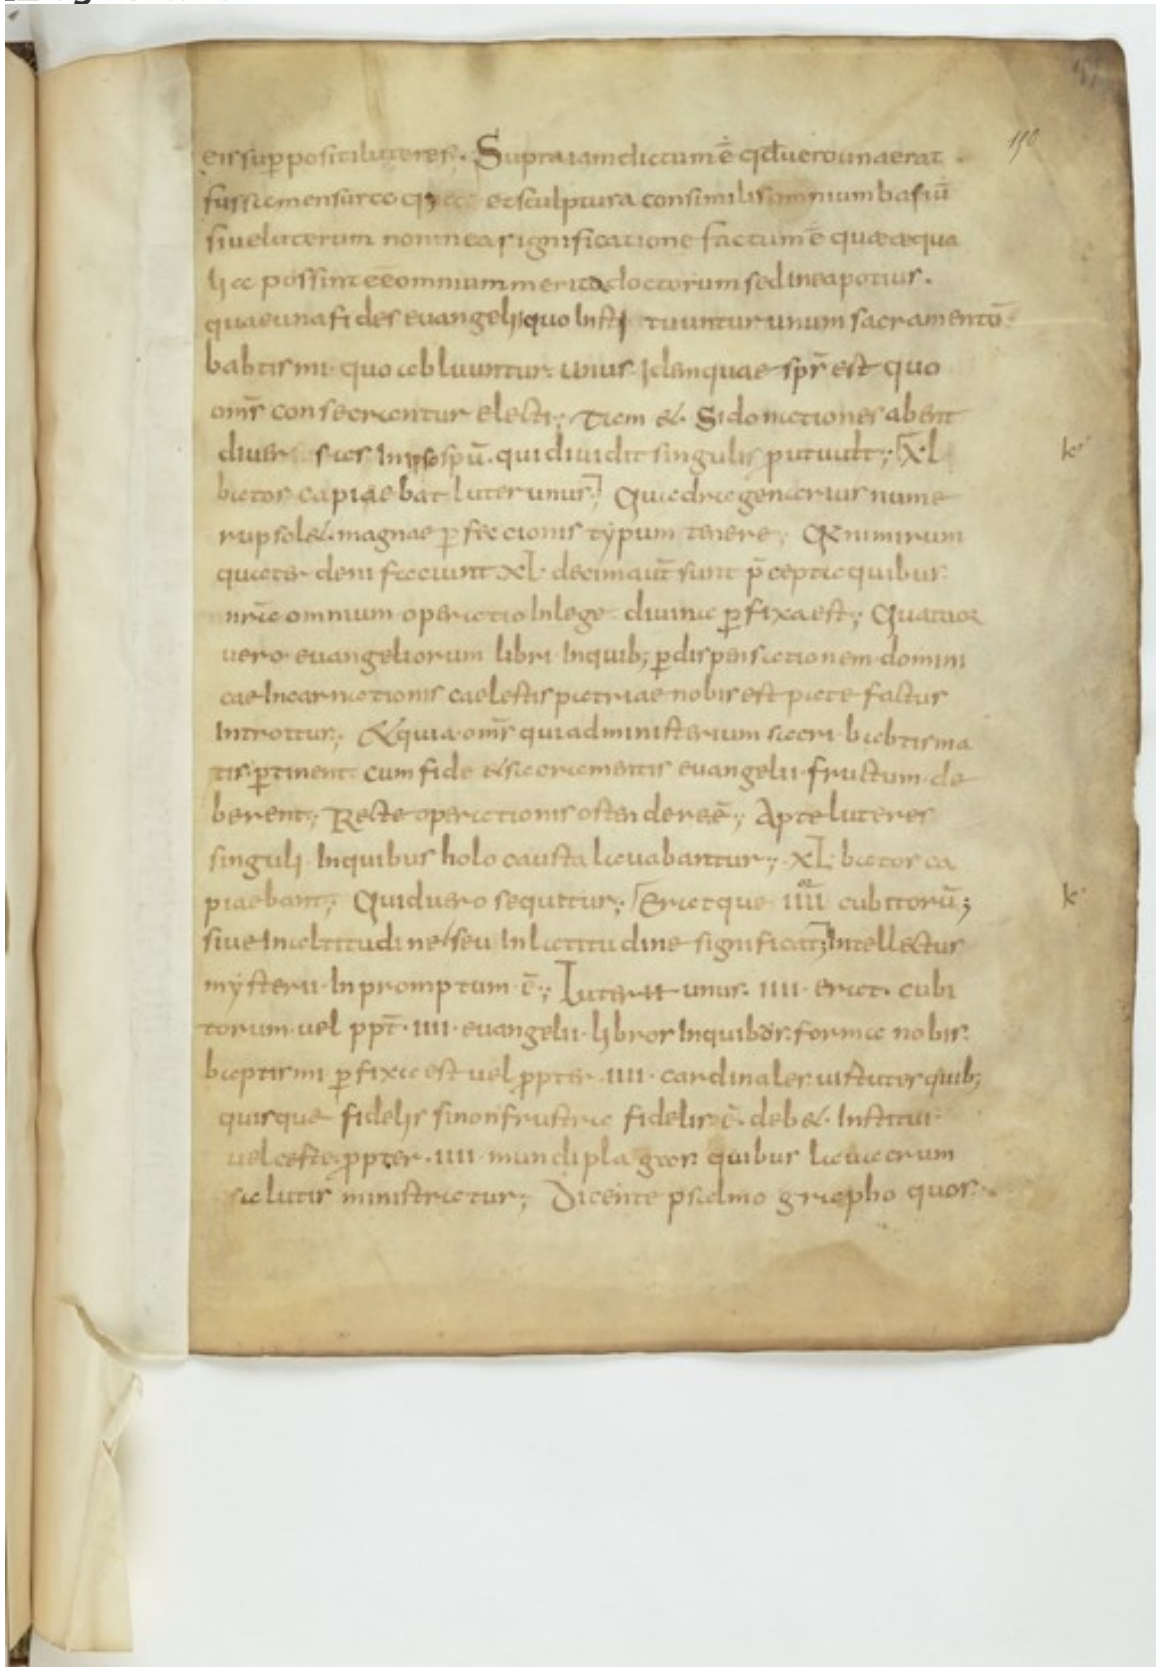 190
eis sup̄positi luteres;. Supra iam dictum ē qđ uero una erat.
fussa mensuraq; et sculptura consimilis omnium basiū
siue luterum non in ea significatione factum ē quae aequa
lia possint eē omnium merita doctorum sed in ea potius.
qua una fides euangelii quo Insti tuuntur unum sacramentū
babtismi quo abluuntur. unus Idemquae spr̄ est quo
omr̄ consecrantur electi; Nam &. Si donationes abent
diuer sas In ipso spū. qui diuidit singulis putuult; XL
batos capiaebat luter unus; Quadragenarius nume
rus sol&. magnae p̄feccionis typum tenere; Quia nimirum
quater deni faciunt XL. decim aut̄ sunt p̄cepta quibus
nr̄a omnium operatio In lege diuina p̄fixa est; Quatuor
uero euangeliorum libri. Inquib; p̄ dispensationem domini
cae Incarnationis caelestis patriae nobis est pate factus
Introitus; & quia omr̄ qui ad ministerium sacri babtisma
tis p̄tinent cum fide & sacramentis euangelii fructum de
berent; Recte operationis ostendere sē; Apte luteres
singuli Inquibus holocausta lauabantur; XL batos ca
piaebant; Quid uero sequitur; Eratque IIII cubitorū;
siue In altitudine seu In latitudine significat; Intellectus
mysterii In promptum ē; Luter unus. IIII. erat cubi
torum uel ppt̄. IIII. euangelii libros Inquib; forma nobis.
baptismi p̄fixa est uel p̄pter. IIII. cardinales uirtutes quib;
quisque fidelis si non frustra fidelis ē. deb&. Institui
uel certe p̄pter. IIII. mundi plagas quibus lauacrum
salutis ministratur; Dicente psalmo grapho quos.
k
k